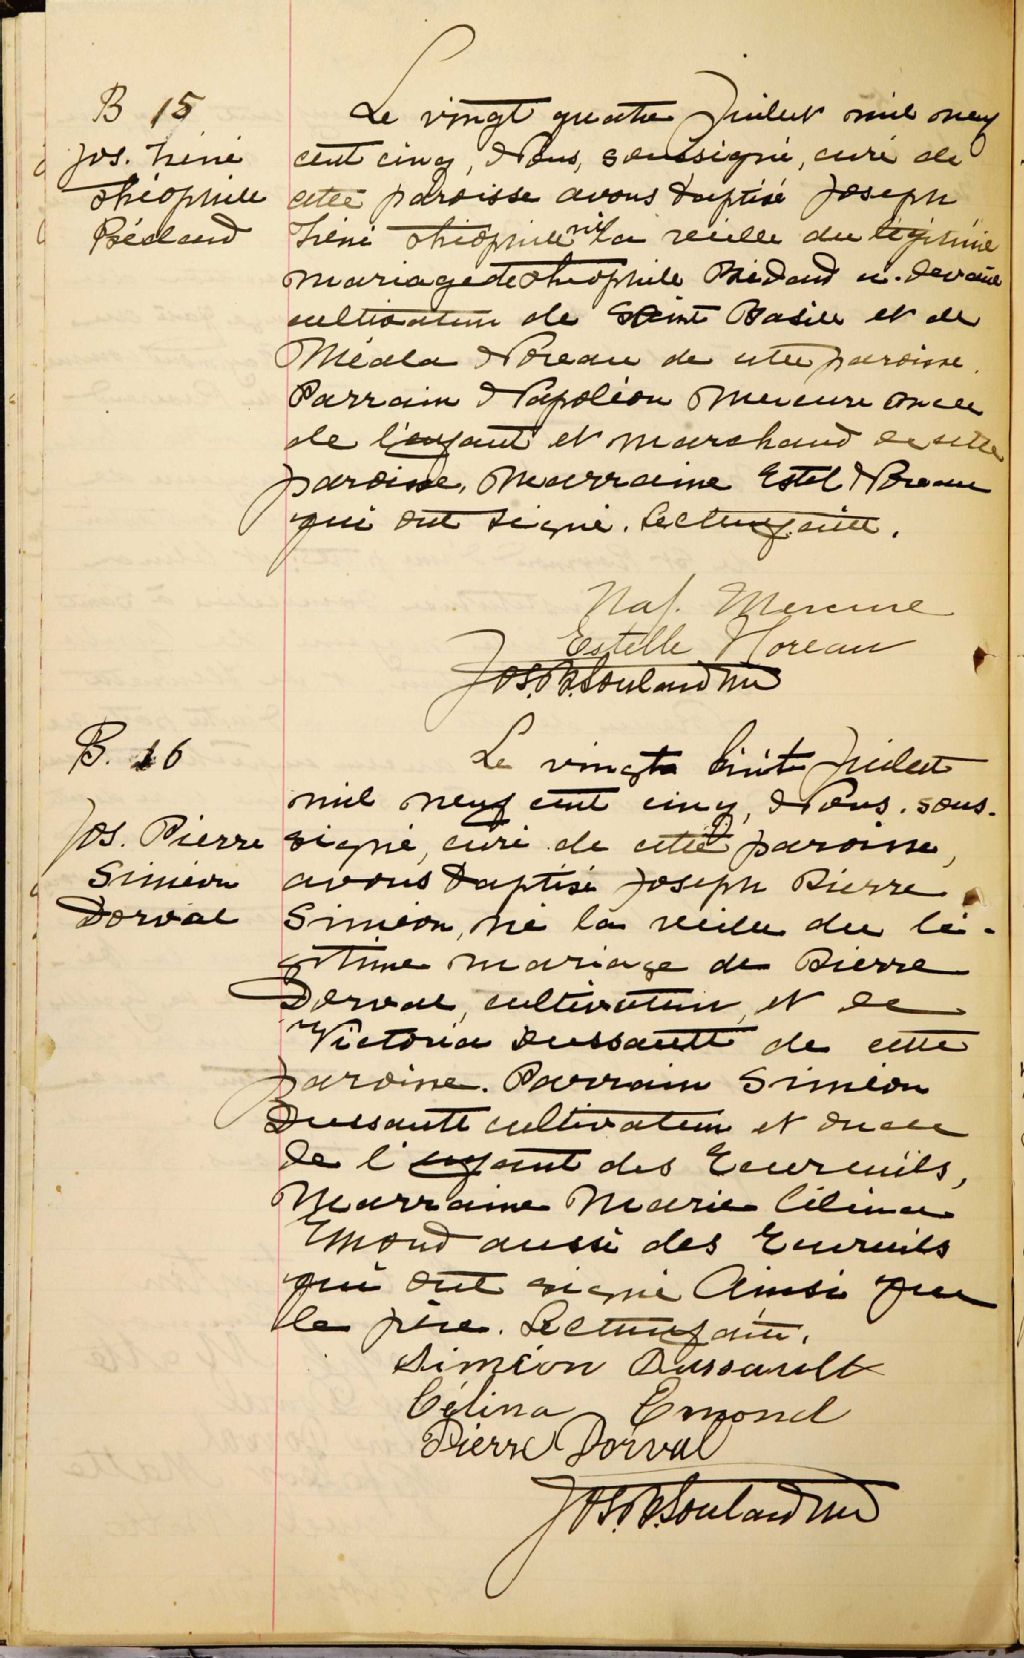 B 15
Jos. Iréné
Théophile
Bédard
Le vingt quatre Juillet mil neuf
cent cinq, Nous, soussigné, curé de
cette paroisse avons baptisé Joseph
Iréné Théophile né la veille du légitime
mariage de Théophile Bédard
cultivateur de Saint Basile et de
Méala Noreau de cette paroisse.
Parrain Napoléon Mercure oncle
de l'enfant et marchand de cette
paroisse, Marraine Estel Noreau
qui ont signé. Lecture faite.
Nap. Mercure
Estelle Noreau
Jos. Soulard
B. 16
Jos. Pierre
Siméon
Dorval
Le vingt huit Juillet
mil neuf cent cinq, Nous. sous-
signé, curé de cette paroisse,
avons baptisé Joseph Pierre
Siméon, né la veille du lé-
gitime mariage de Pierre
Dorval, cultivateur, et de
Victoria Dussault de cette
paroisse. Parrain Siméon
Dussault cultivateur et oncle
de l'enfant des Ecureuils,
Marraine Marie Célina
Emond aussi des Ecureuils
qui ont signé ainsi que
le père. Lecture faite.
Siméon Dussault
Célina Emond
Pierre Dorval
Jos. Soulard